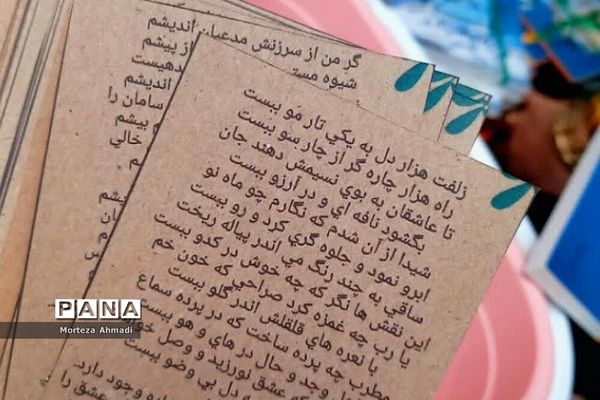 گر من از سرزنش مدعیان اندیشم
شیوه مستی
از پیشم
دهیست
اندیشم
سامان را
بیشم
خالی
زلفت هزار دل به یکي تار مو ببست
راه هزار چاره گر از چار سو ببست
تا عاشقان به بوي نسیمش دهند جان
بگشود نافه اي و در آرزو ببست
شیدا از آن شدم که نگارم چو ماه نو
ابرو نمود و جلوه گري کرد و رو ببست
ساقي به چند رنگ مي اندر پیاله ریخت
این نقش ها نگر که چه خوش در کدو ببست
یا رب چه غمزه کرد صراحي که خون خم
با نعره هاي قلقلش اندر گلو ببست
مطرب چه پرده ساخت که در پرده سماع
وجد و حال در هاي و هو ببست
که عشق نورزید و وصل خو
دل بي وضو ببست
وجود دارد.
عشق را
PANA
Morteza Ahmadi